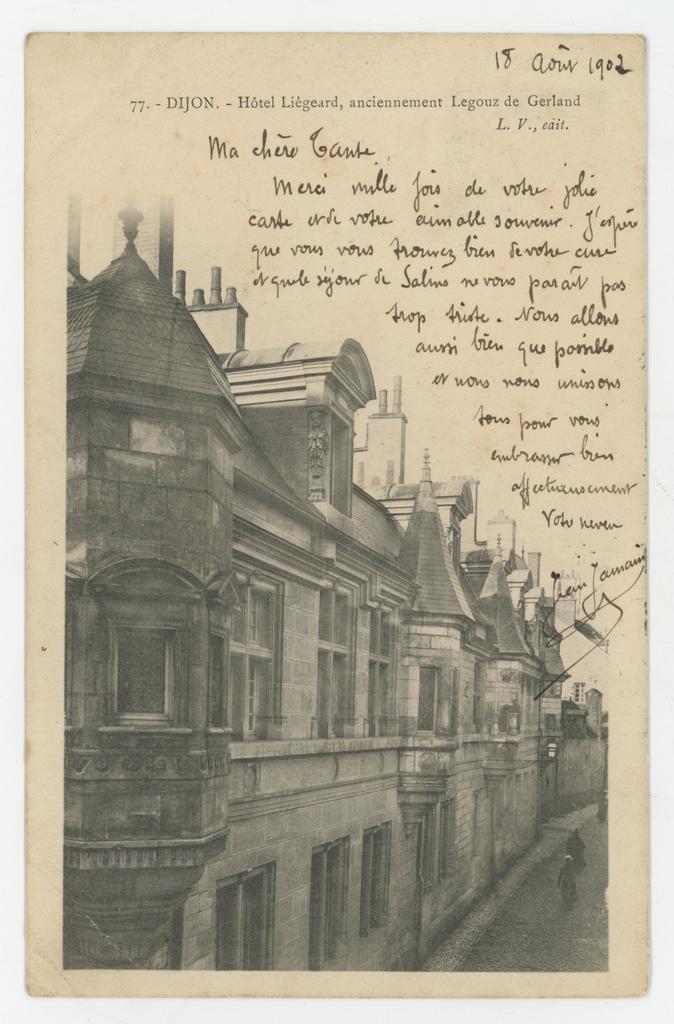 18 Août 1902
77. - DIJON. - Hôtel Liégeard, anciennement Legouz de Gerland
L. V., édit.
Ma chère Tante,
Merci mille fois de votre jolie
carte et de votre aimable souvenir. J'espère
que vous vous trouvez bien de votre cure
et que le séjour de Salins ne vous paraît pas
trop triste. Nous allons
aussi bien que possible
et nous nous unissons
tous pour vous
embrasser bien
affectueusement
Votre neveu
Jean Jamain